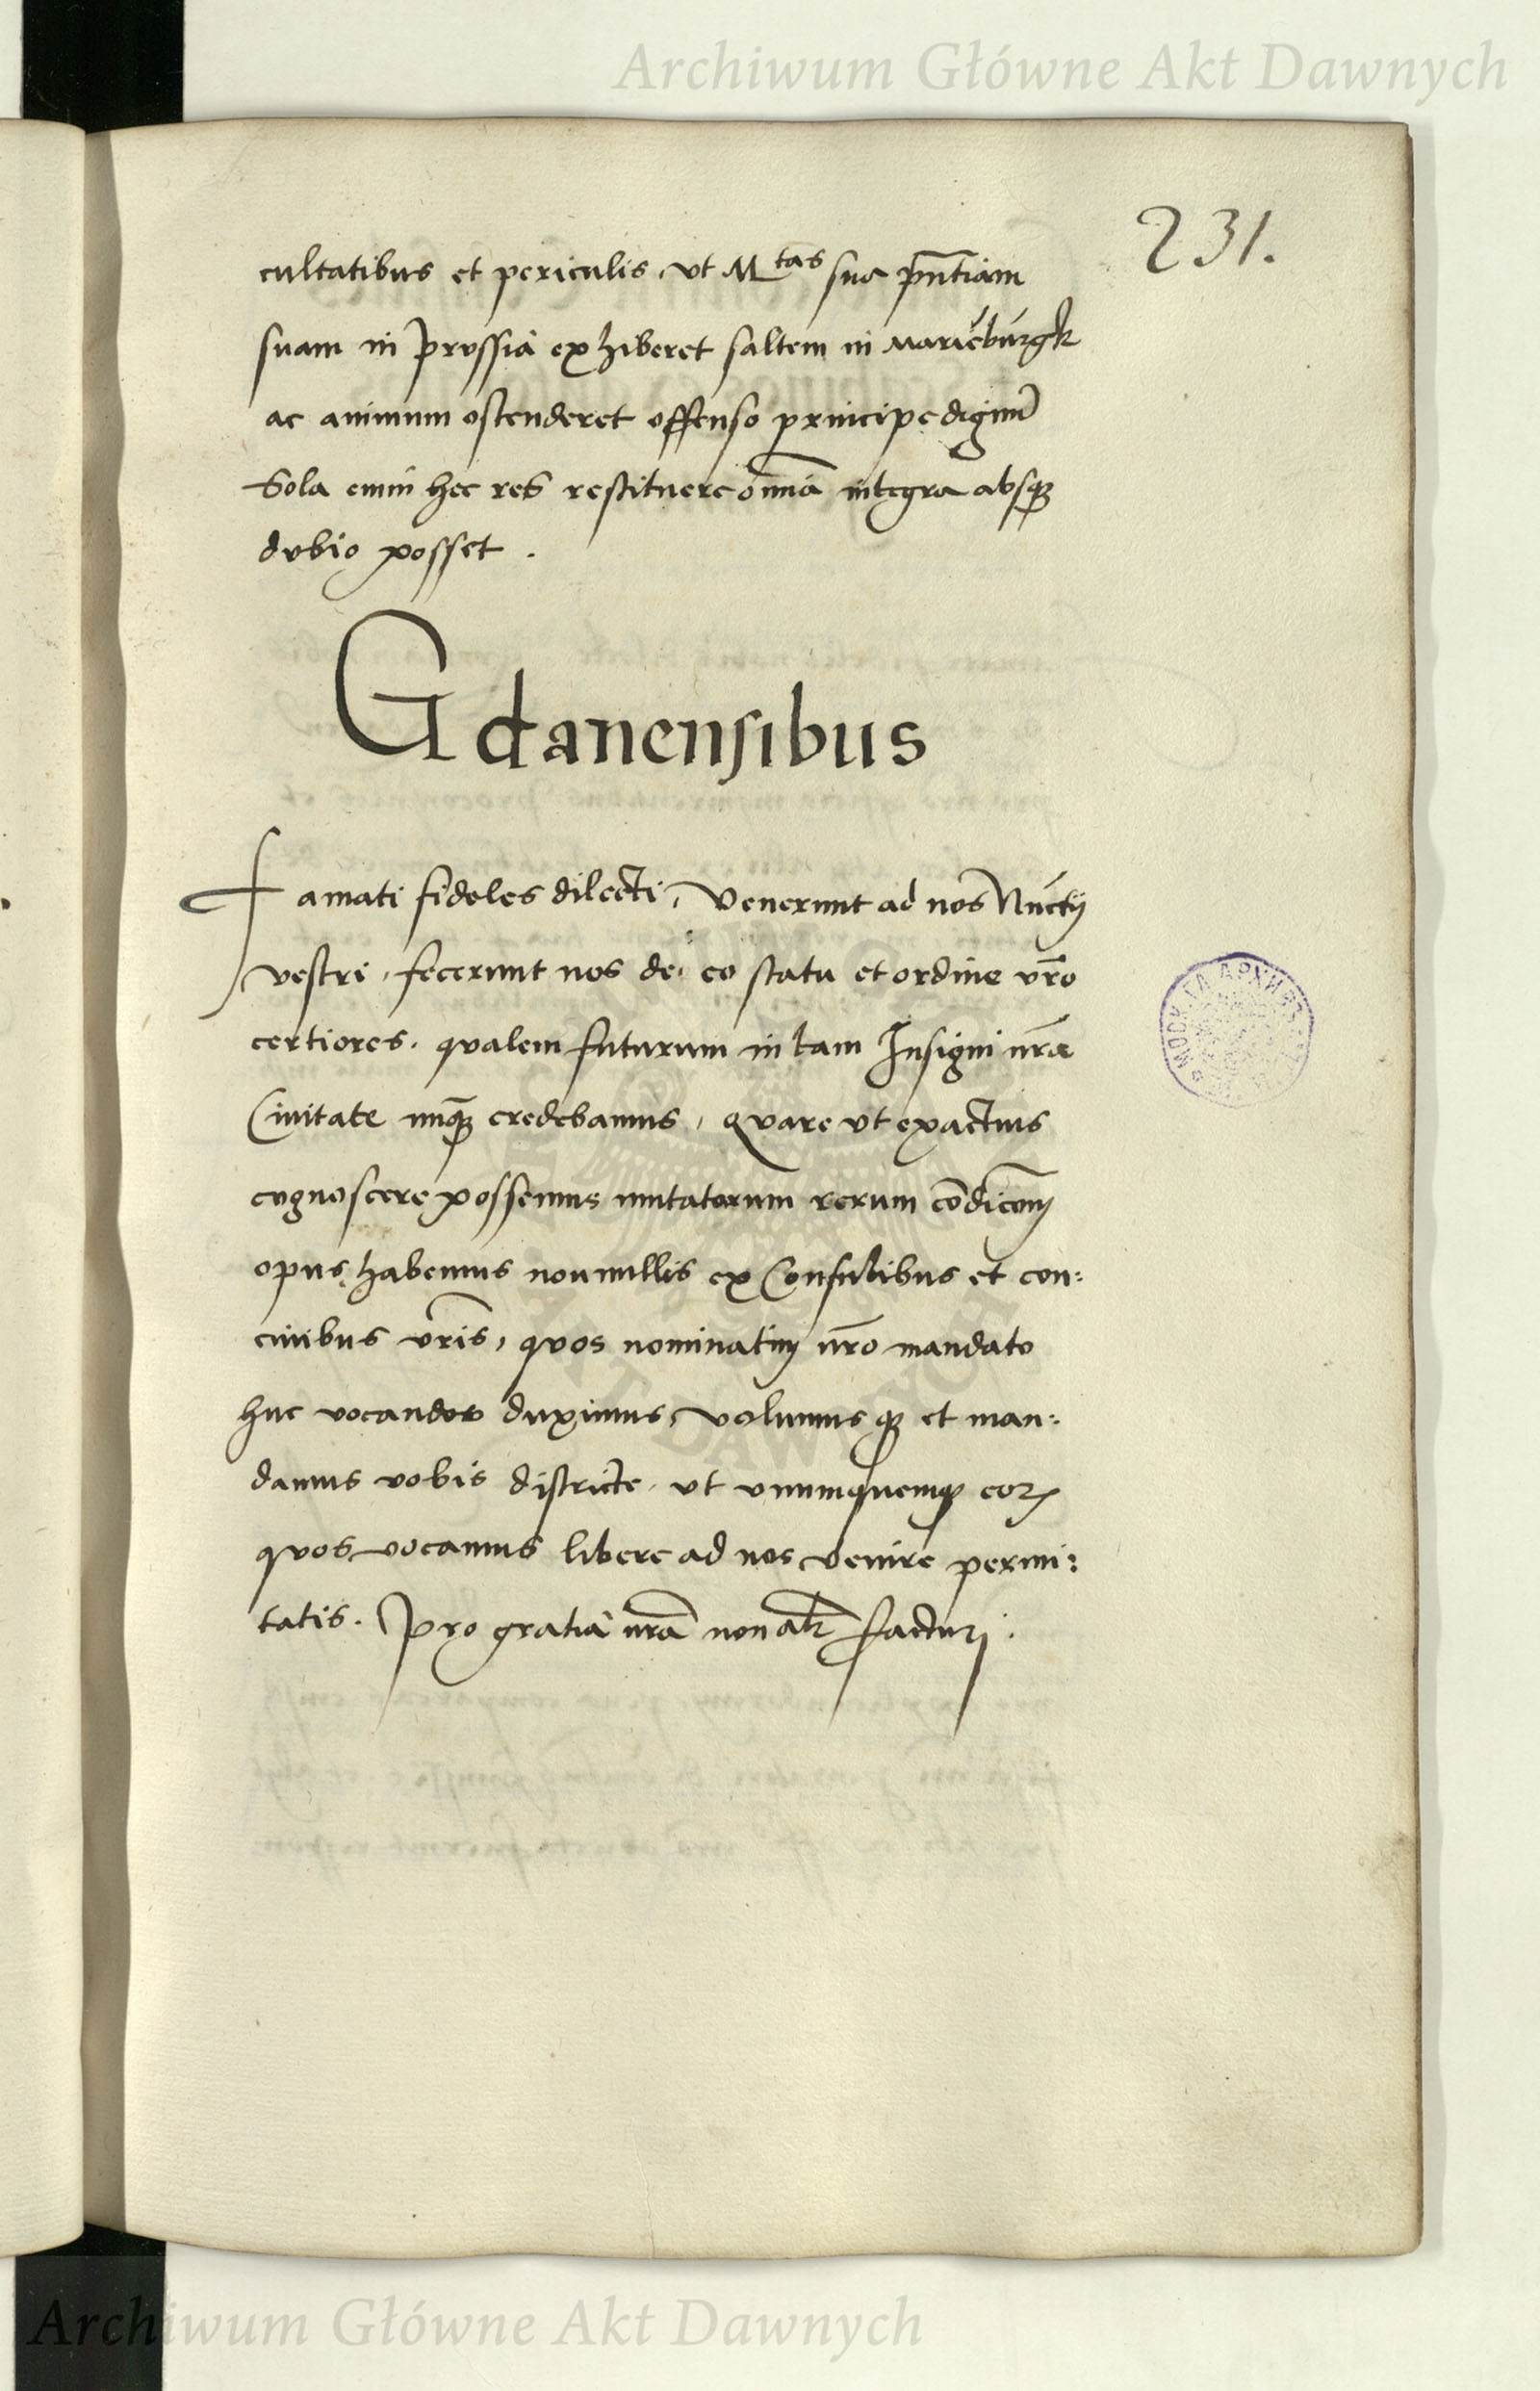 Archiwum Główne Akt Dawnych
231.
cultatibus et periculis, vt M^tas sua pn̄tiam
suam in prussia exhiberet saltem in Mariēburgk
ac animum ostenderet offenso principe dignū
Sola enim hec res restituere om̄ia integra absq;
dubio posset .
Gdanensibus
Famati fideles dilecti, Venerunt ad nos Nuctij
vestri, fecerunt nos de eo statu et ordine vr̄o
certiores. qualem futurum in tam Insigni nr̄a
Ciuitate nūq; credebamus, quare vt exactius
cognoscere possemus mutatarum rerum cōdicōnē
opus habemus nonnullis ex Consulibus et con:
ciuibus vr̄is, quos nominatim nr̄o mandato
huc vocandos duximus, volumus q; et man:
damus vobis districte, vt vnumquemq; eoꝝ
quos vocamus libere ad nos venire permi:
tatis. Pro gratia nr̄a non alr̄ facturi.
Archiwum Główne Akt Dawnych